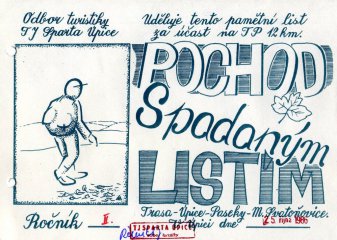 Odbor turistiky
TJ Sparta Úpice
Uděluje tento pamětní list
za účast na TP 12 km.
POCHOD
Spadaným
LISTÍM
Trasa-Úpice-Paseky-M. Svatoňovice.
Ročník II.
V Úpici dne 25. října 1986
TJ SPARTA ÚPICE